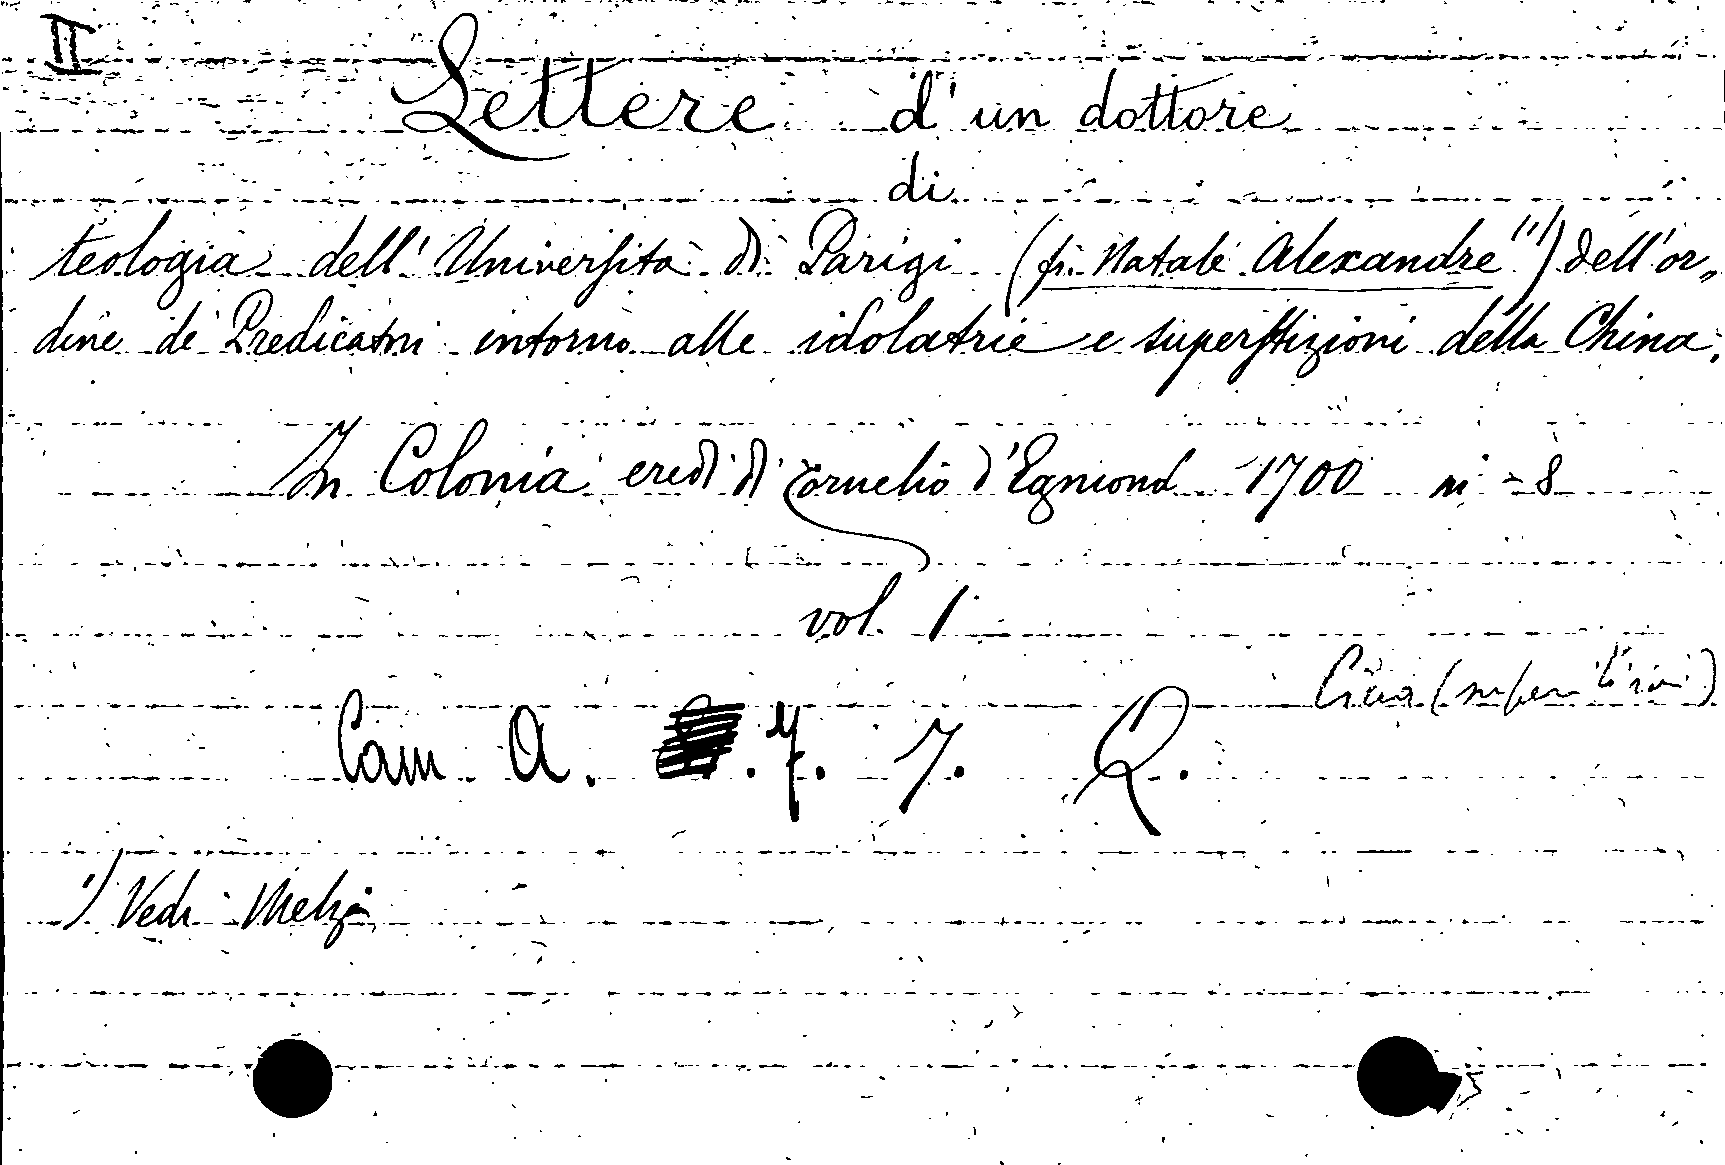 II
Lettere d'un dottore
di
teologia dell'Università di Parigi (fr. Natale Alexandre ¹⁾) dell'or„
dine de' Predicatori intorno alle idolatrie e superstizioni della China.
In Colonia eredi di Cornelio d'Egmond 1700 in-8
vol. 1
Cina (superstizioni)
Cam A. . 7. 7. Q.
¹⁾ Vedi Melzi